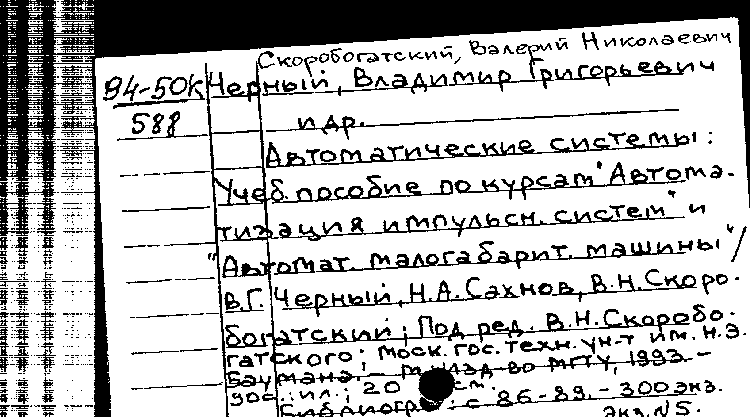 Скоробогатский, Валерий Николаевич
94-50К Черный, Владимир Григорьевич
588 и др.
Автоматические системы:
Учеб. пособие по курсам "Автома-
тизация импульсн. систем" и
"Автомат. малогабарит. машины"/
В.Г. Черный, Н.А. Сахнов, В.Н. Скоро-
богатский; Под ред. В.Н. Скоробо-
гатского; Моск. гос. техн. ун-т им. Н.Э.
Баумана. - М.: Изд-во МГТУ, 1993. -
ил.; 20 см.
Библиогр.: с. 86-89. - 300 экз.
Экз. N5.